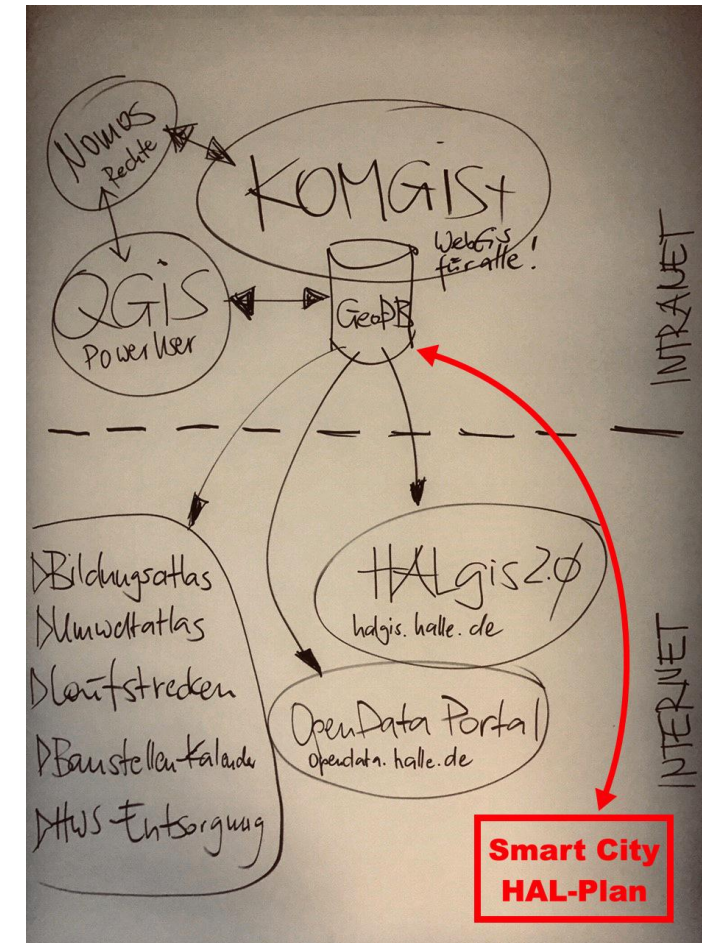 Nomos
Rechte
KOMGISt
WebGis
für alle!
QGiS
PowerUser
GeoDB
INTRANET
Bildungsatlas
Umweltatlas
Laufstrecken
Baustellen-Kalender
HWS-Entsorgung
HALgis2.0
halgis.halle.de
OpenData Portal
opendata.halle.de
INTERNET
Smart City
HAL-Plan